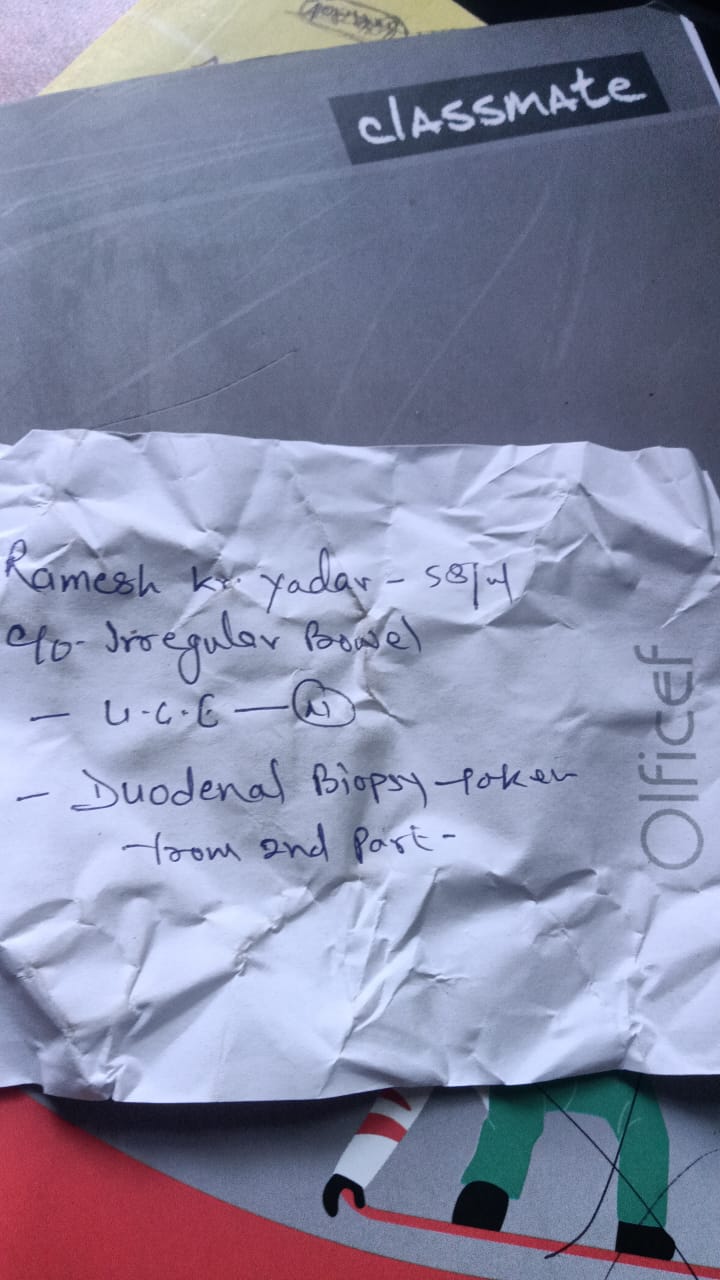 classmate
Ramesh Kr. Yadav - 58/M
c/o - Irregular Bowel
- U.G.E - N
- Duodenal Biopsy taken
from 2nd Part -
Olficef